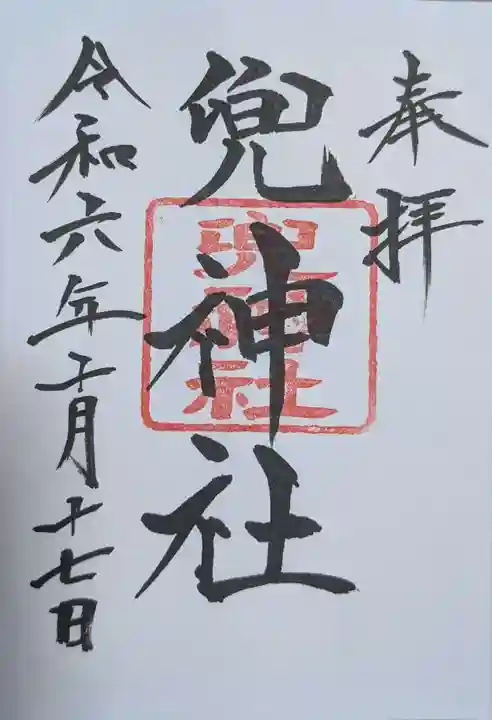 奉拝
兜神社
兜神社
令和六年 月十七日